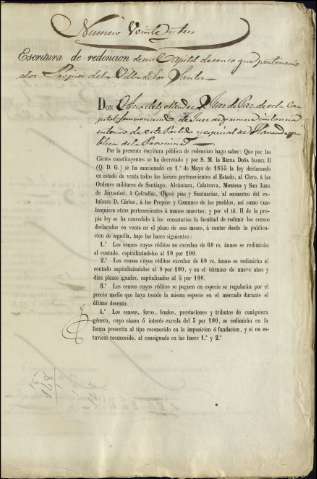 Numero Veinte y tres
Escritura de redencion de un Capital de censo que pertenecia
a los Propios de la Villa de los
Don
Por la presente escritura pública de redencion hago saber: Que por las
Córtes constituyentes se ha decretado y por S. M. la Reina Doña Isabel II
(Q. D. G.) se ha sancionado en 1.º de Mayo de 1855 la ley declarando
en estado de venta todos los bienes pertenecientes al Estado, al Clero, á las
Ordenes militares de Santiago, Alcántara, Calatrava, Montesa y San Juan
de Jerusalen, á Cofradías, Obras pias y Santuarios, al secuestro del ex-
Infante D. Cárlos, á los Propios y Comunes de los pueblos, así como cua-
lesquiera otros pertenecientes á manos muertas, y por el tít. II de la pro-
pia ley se ha concedido á los censatarios la facultad de redimir los censos
declarados en venta en el plazo de seis meses, á contar desde la publicacion
de aquella, bajo las bases siguientes:
1.ª Los censos cuyos réditos no escedan de 60 rs. ánuos se redimirán
al contado, capitalizándolos al 10 por 100.
2.ª Los censos cuyos réditos escedan de 60 rs. ánuos se redimirán al
contado capitalizándolos al 8 por 100, y en el término de nueve años y
diez plazos iguales, capitalizados al 5 por 100.
3.ª Los censos cuyos réditos se paguen en especie se regularán por el
precio medio que haya tenido la misma especie en el mercado durante el
último decenio.
4.ª Los censos, foros, treudos, prestaciones y tributos de cualquiera
género, cuyo cánon ó interés esceda del 5 por 100, se redimirán en la
forma prescrita al tipo reconocido en la imposicion ó fundacion, y si no es-
tuviese reconocido, al consignado en las bases 1.ª y 2.ª